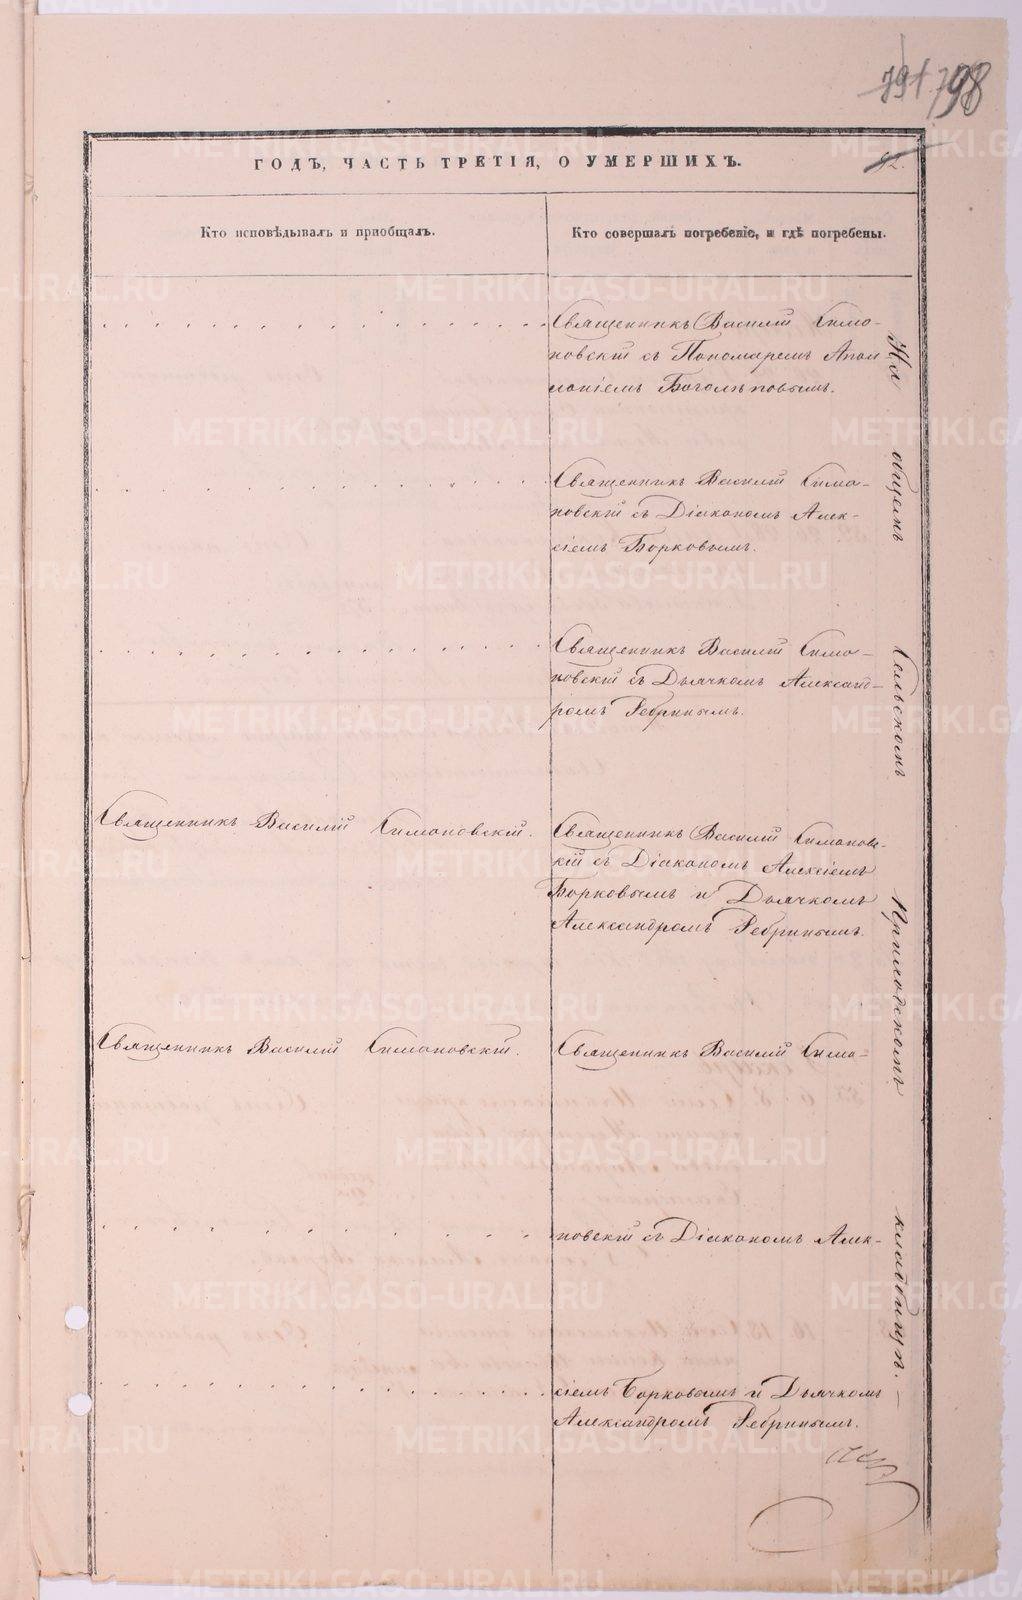 791. 798
ГОДЪ, ЧАСТЬ ТРЕТІЯ, О УМЕРШИХЪ.
92.
Кто исповѣдывалъ и пріобщалъ.
Кто совершалъ погребеніе, и гдѣ погребены.
Священникъ Василій Симо-
новскій съ Пономаремъ Апол
лоніемъ Боголѣповымъ.
Священникъ Василій Симо-
новскій съ Діакономъ Алек-
сіемъ Борковымъ.
Священникъ Василій Симо-
новскій съ Дьячкомъ Александ-
ромъ Ребринымъ.
Священникъ Василій Симоновскій.
Священникъ Василій Симоновс-
кій съ Діакономъ Алексіемъ
Борковымъ и Дьячкомъ
Александромъ Ребринымъ.
Священникъ Василій Симоновскій.
Священникъ Василій Симо-
новскій съ Діакономъ Алек-
сіемъ Борковымъ и Дьячкомъ
Александромъ Ребринымъ.
На общемъ сельскомъ приходскомъ кладбищѣ.
METRIKI.GASO-URAL.RU